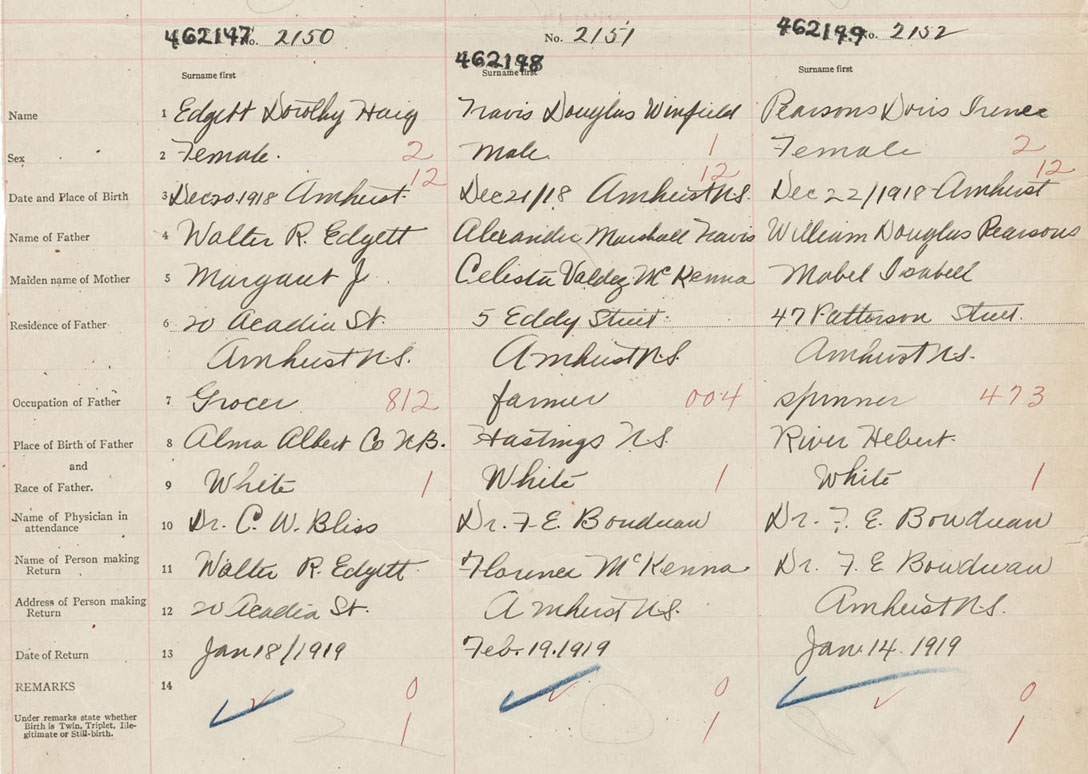 462147 No. 2150 No. 2151 462149 No. 2152
462148
Surname first Surname first Surname first
Name 1 Edgett Dorothy Haig Travis Douglas Winfield Pearsons Doris Irene
Sex 2 Female. 2 Male 1 Female 2
12 12 12
Date and Place of Birth 3 Dec 20 1918 Amherst. Dec 21/18 Amherst N.S. Dec 22/1918 Amherst
Name of Father 4 Walter R. Edgett Alexander Marshall Travis William Douglas Pearsons
Maiden name of Mother 5 Margaret J. Celesta Valdez McKenna Mabel Isabell
Residence of Father 6 20 Acadia St. 5 Eddy Street. 47 Patterson Street.
Amherst N.S. Amherst N.S. Amherst N.S.
Occupation of Father 7 Grocer 812 farmer 004 spinner 473
Place of Birth of Father 8 Alma Albert Co N.B. Hastings N.S. River Hebert.
and
Race of Father. 9 White 1 White 1 White 1
Name of Physician in attendance 10 Dr. C. W. Bliss Dr. F E Boudreau Dr. F. E. Boudreau
Name of Person making Return 11 Walter R. Edgett Florence McKenna Dr. F. E Boudreau
Address of Person making Return 12 20 Acadia St. Amherst N.S. Amherst N.S.
Date of Return 13 Jan 18/1919 Feb. 19. 1919 Jan. 14. 1919
REMARKS 14 0 0 0
Under remarks state whether
Birth is Twin, Triplet, Ille-
gitimate or Still-birth. 1 1 1